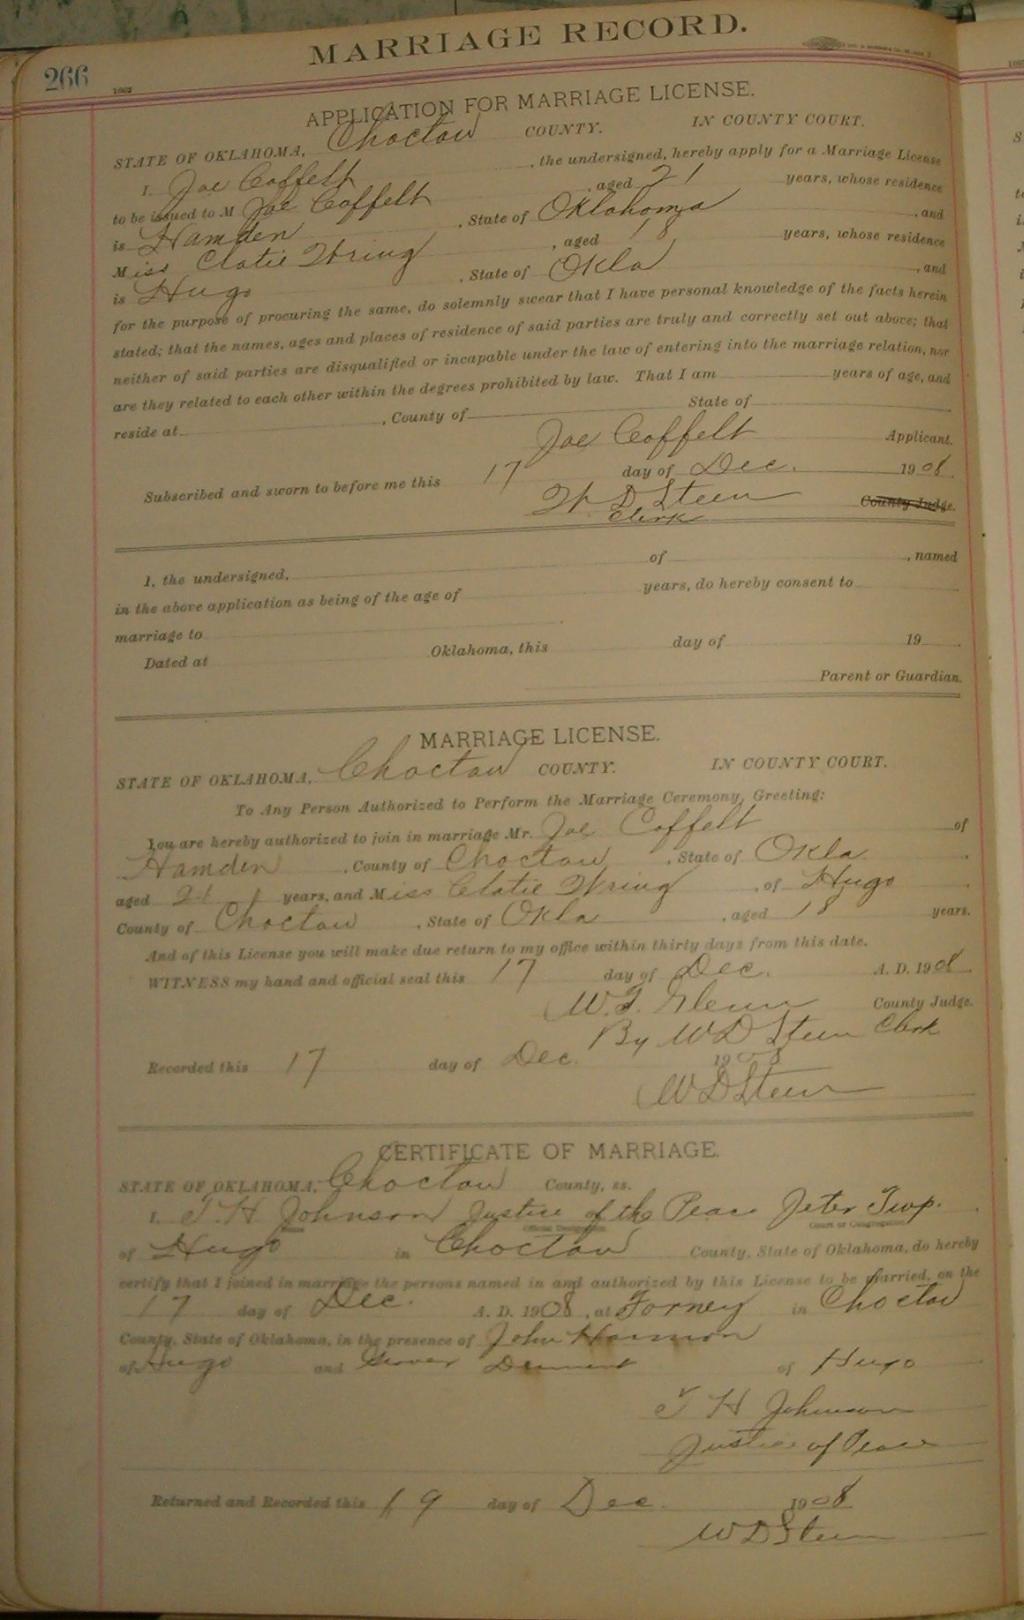 MARRIAGE RECORD.
266
1002
APPLICATION FOR MARRIAGE LICENSE.
STATE OF OKLAHOMA, Choctaw COUNTY. IN COUNTY COURT.
I, Joe Coffelt, the undersigned, hereby apply for a Marriage License
to be issued to M Joe Coffelt, aged 21 years, whose residence
is Hamden, State of Oklahoma, and
Miss Clatie Wring, aged 18 years, whose residence
is Hugo, State of Okla, and
for the purpose of procuring the same, do solemnly swear that I have personal knowledge of the facts herein
stated; that the names, ages and places of residence of said parties are truly and correctly set out above; that
neither of said parties are disqualified or incapable under the law of entering into the marriage relation, nor
are they related to each other within the degrees prohibited by law. That I am years of age, and
reside at , County of State of
Joe Coffelt Applicant.
Subscribed and sworn to before me this 17 day of Dec. 1908
W D Steen County Judge.
Clerk
I, the undersigned, of , named
in the above application as being of the age of years, do hereby consent to
marriage to
Dated at Oklahoma, this day of 19
Parent or Guardian.
MARRIAGE LICENSE.
STATE OF OKLAHOMA, Choctaw COUNTY. IN COUNTY COURT.
To Any Person Authorized to Perform the Marriage Ceremony, Greeting:
You are hereby authorized to join in marriage Mr. Joe Coffelt of
Hamden, County of Choctaw, State of Okla.
aged 21 years, and Miss Clatie Wring, of Hugo
County of Choctaw, State of Okla, aged 18 years.
And of this License you will make due return to my office within thirty days from this date.
WITNESS my hand and official seal this 17 day of Dec. A. D. 1908
W. T. Glenn County Judge.
By W D Steen Clerk
Recorded this 17 day of Dec. 1908
W D Steen
CERTIFICATE OF MARRIAGE.
STATE OF OKLAHOMA, Choctaw County, ss.
I, T. H. Johnson Justice of the Peace Jeter Twp.
Official Designation Court or Congregation
of Hugo in Choctaw County, State of Oklahoma, do hereby
certify that I joined in marriage the persons named in and authorized by this License to be married, on the
17 day of Dec. A. D. 1908, at Forney in Choctaw
County, State of Oklahoma, in the presence of John Harmon
of Hugo and Grover of Hugo
T H Johnson
Justice of Peace
Returned and Recorded this 19 day of Dec. 1908
W D Steen